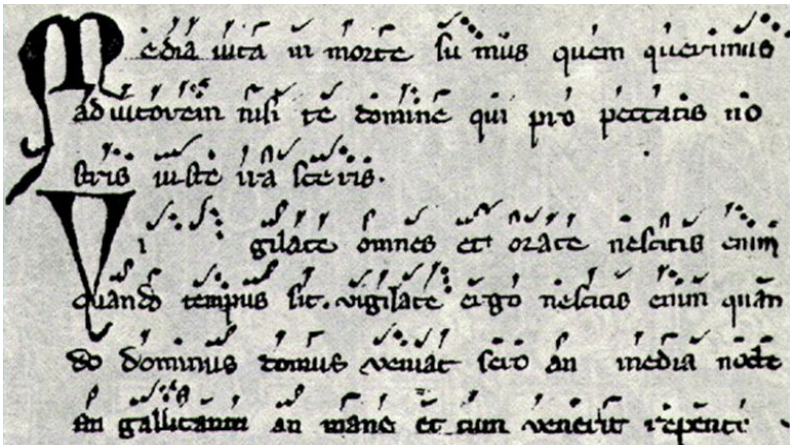 Media vita in morte su mus quem querimus
ad iutorem nisi te domine qui pro peccatis no
stris iuste ira sceris.
Vi gilate omnes et orate nescitis enim
quando tempus sit. vigilate ergo nescitis enim quan
do dominus domus veniat sero an media nocte
an gallicantu an mane et cum venerit repente